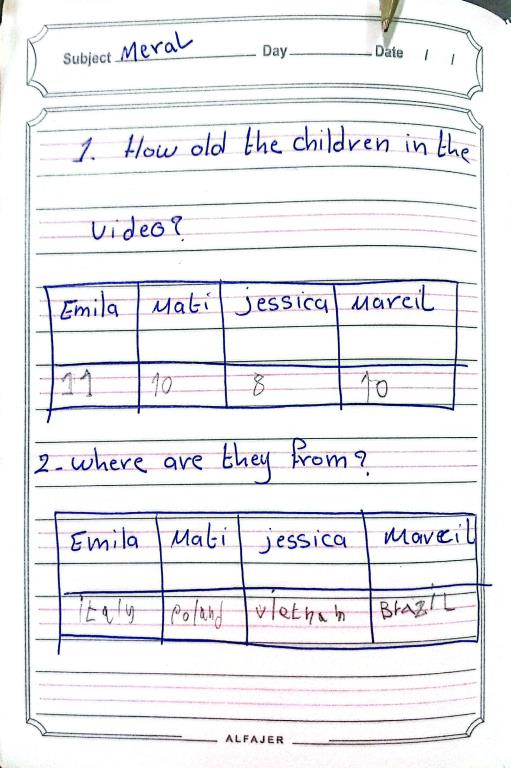 Subject Meral Day Date / /
1. How old the children in the
video?
Emila Mati jessica Marcil
11 10 8 10
2- where are they from?
Emila Mati jessica Marcil
italy Poland vietnam BRAZIL
ALFAJER